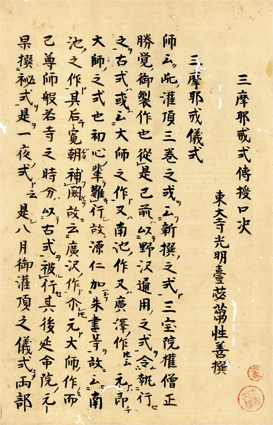 三摩耶戒式傳授口决
東大寺光明臺苾蒭性善撰
三摩耶戒儀式
師云此灌頂三卷之戒云新撰之式三宝院權僧正
勝覚御製作也從是已前以野沢通用之式令執行
之古式或云大師之作又南池作又廣澤作云元即
大師之式也初心輩難行故源仁加朱書等故云南
池之作其后寛朝神
故云廣沢作尒元大師作而
已尊師般若寺之時分以古式被行其後延命院元
杲撰秘式是一夜式云是八月御灌頂之儀式両部